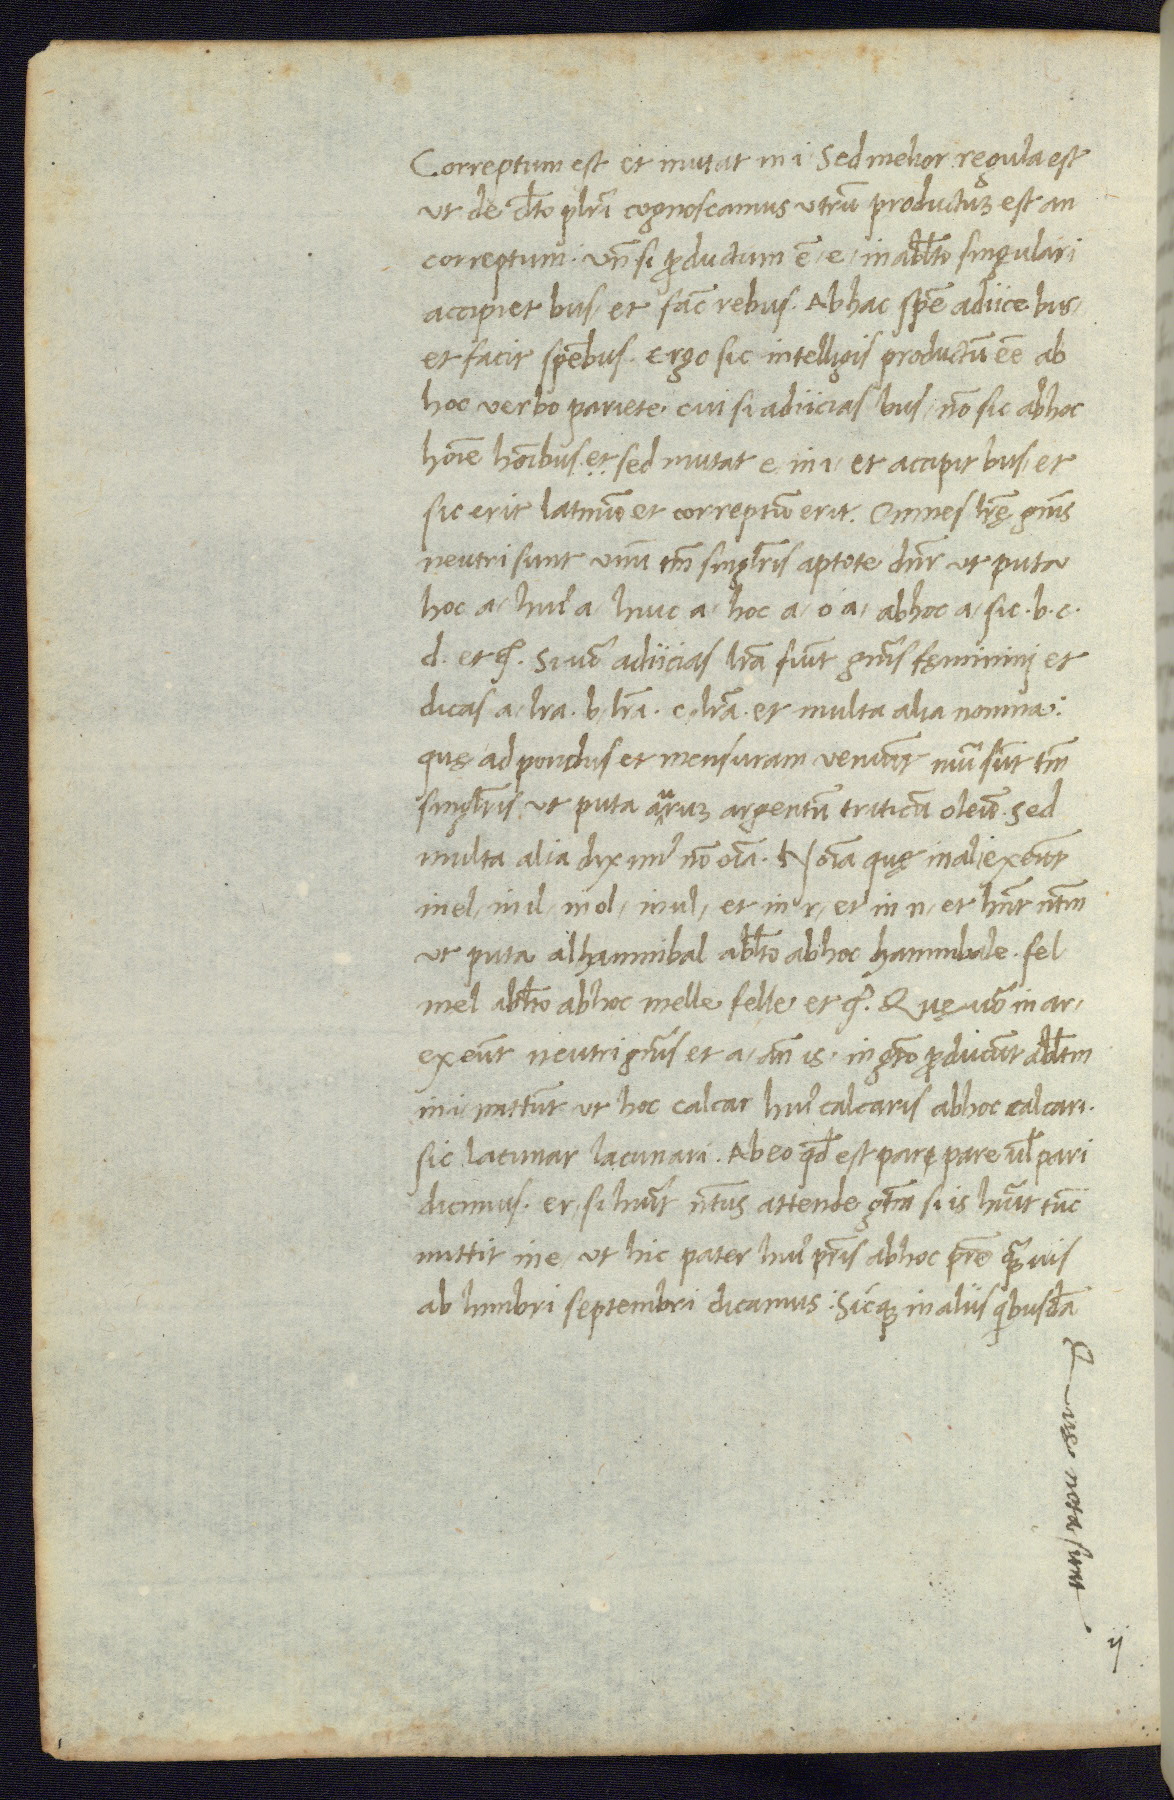 Correptum est et mutat in i Sed melior regula est
ut de dt̄o plr̄i cognoscamus utrū productuꝫ est an
correptum: un̄ si ꝓductum ē, e, in abltō singulari
accipiet bus, et fac̄ rebus. Ab hac spē adiice bus,
et facit spēbus. Ergo sic intelligis productū eē ab
hoc verbo pariete, cui si adiicias bus, nō sic ab hoc
hoīe hoībus, et sed mutat e in i, et accipit bus, et
sic erit latinū et correptū erit. Omnes lr̄ę gn̄is
neutri sunt unū tm̄ singl̄ris aptote dn̄r ut puta
hoc a, huiꝰ a, huic a, hoc a, o a, ab hoc a, sic. b. c.
d. et q̄. Si uō adiicias lr̄a fiūt gn̄is fęminini et
dicas a, lr̄a. b, lr̄a. c, lr̄a. et multa alia nomina:
quę, ad pondus et mensuram veniūt nūi sūt tm̄
singl̄ris, ut puta auruꝫ argentū triticū oleū. Sed
multa alia diximꝰ nō oīa. Noīa quę in al, exeūt
in el, in il, in ol, in ul, et in r, et in n, et hn̄t ntm̄
ut puta al hannibal abltō ab hoc hannibale. fel
mel abltō ab hoc melle felle et q̄. Quę uō in ar,
exeūt neutri gn̄is et a, an̄ is, in gt̄o ꝓducūt abltm̄
in i, mittūt ut hoc calcar huiꝰ calcaris ab hoc calcari.
sic lacunar lacunari. Ab eo qd̄ est par, pare ul̄ pari
dicimus. er, si hūit nt̄us attende gtm̄ si is hūit tūc
mittit in e, ut hic pater huiꝰ pr̄is ab hoc pr̄e q̄uis
ab himbri septembri dicamus: Sicqꝫ in aliis qibusdā
Quę nota sunt
ij